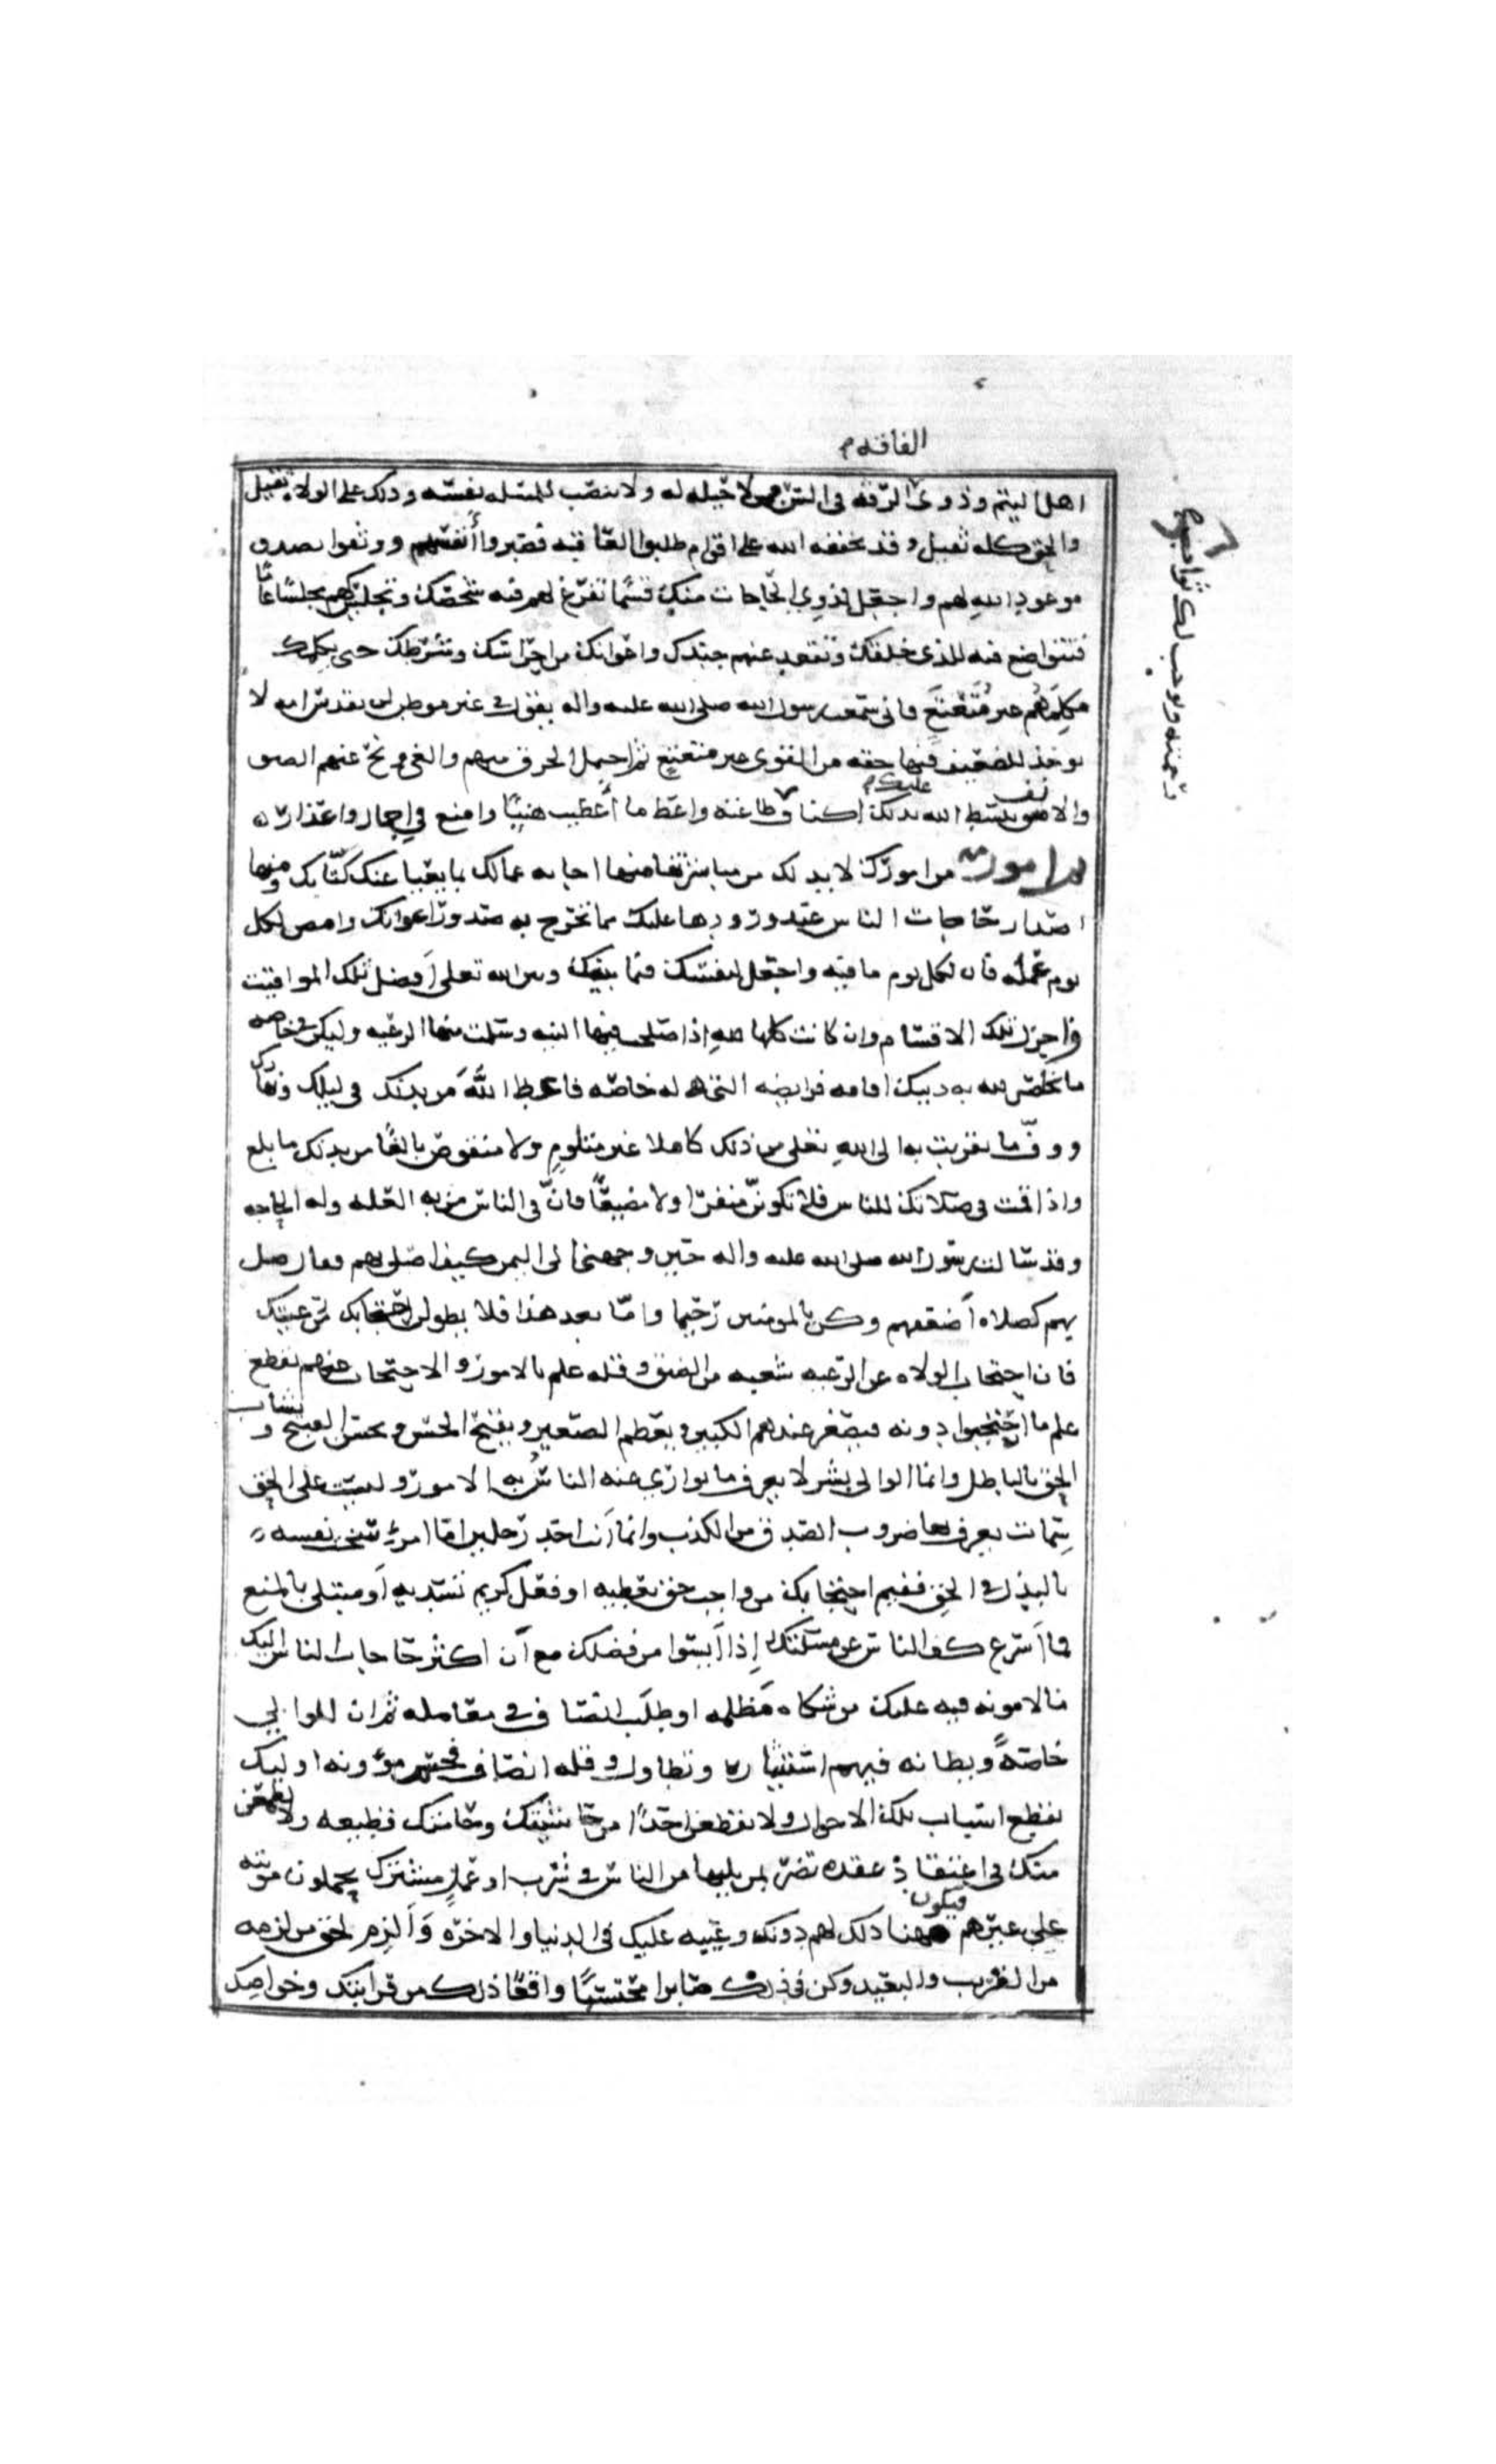 الفاقه م
اهل اليتم وذوي الرقه في السن ممن لا حيله له ولا ينصب للمسئله نفسه وذلك على الولاه ثقيل
والحق كله ثقيل وقد يخففه الله على اقوام طلبوا العاقبه فصبروا أنفسهم ووثقوا بصدق
موعود الله لهم واجعل لذوي الحاجات منك قسمًا تفرغ لهم فيه شخصك وتجلس لهم مجلسًا عامًا
فتتواضع فيه للذي خلقك وتقعد عنهم جندك واعوانك من احراسك وشرطك حتى يكلمك
مكلمهم غير مُتَعتِعٍ فاني سمعت رسول الله صلى الله عليه واله يقول في غير موطن لن تقدس امه لا
يوخذ للضعيف فيها حقه من القوي غير متعتع ثم احتمل الخرق منهم والعي ونح عنهم الضيق
والانف يبسط الله بذلك عليك اكناف
رحمته ويوجب لك ثواب
طاعته واعط ما أعطيت هنيئًا وامنع في اجمال واعذار ه
ثم امور من امورك لا بد لك من مباشرتها منها اجابه عمالك بما يعيا عنك كتابك ومنها
اصدار حاجات الناس عند ورودها عليك مما تحرج به صدور اعوانك وامض لكل
يوم عمله فان لكل يوم ما فيه واجعل لنفسك فيما بينك وبين الله تعلى أفضل تلك المواقيت
واجزل تلك الاقسام وان كانت كلها لله اذا صلحت فيها النيه وسلمت منها الرعيه وليكن في خاصه
ما تخلص لله به دينك اقامه فرايضه التي هي له خاصه فاعط اللهَ من بدنك في ليلك ونهارك
ووفّ ما تقربت به الى الله تعلى من ذلك كاملا غير مثلومٍ ولا منقوص بالغًا من بدنك ما بلغ
واذا قمت في صلاتك للناس فلا تكوننّ منفرا ولا مضيعًا فانّ في الناس من به العله وله الحاجه
وقد سالت رسول الله صلى الله عليه واله حين وجهني الى اليمن كيف اصلي بهم فقال صل
بهم كصلاه أضعفهم وكن بالمومنين رحيما وامّا بعد هذا فلا يطولن احتجابك عن رعيتك
فان احتجاب الولاه عن الرعيه شعبه من الضيق وقله علم بالامور والاحتجاب عنهم يقطع
علم ما احتجبوا دونه فيصغر عندهم الكبير ويعظم الصغير ويقبح الحسن ويحسن القبيح ويشاب
الحق بالباطل وانما الوالي بشر لا يعرف ما توارى عنه الناسُ به من الامور وليست على الحق
سمات يعرف بها ضروب الصدق من الكذب وانما أنت احد رجلين اما امرؤ سخت نفسه
بالبذل في الحق ففيم احتجابك من واجب حق تعطيه او فعل كريم تسديه أو مبتلى بالمنع
فما أسرع كف الناس عن مسئلتك إذا أيسوا من فضلك مع أن اكثر حاجات الناس اليك
مالا مونه فيه عليك من شكاه مظلمه او طلب انصاف في معامله ثم ان للوالي
خاصهً وبطانه فيهم استيثار وتطاول وقله انصاف فاحسم مؤونه اوليك
بقطع اسباب تلك الاحوال ولا تقطعن احدًا من حاشيتك وحامتك قطيعه ولا يطمعن
منك في اعتقاد عقده تضر بمن يليها من الناس في شرب او عملٍ مشترك يحملون مونته
على غيرهم فيكون مهنا ذلك لهم دونك وعيبه عليك في الدنيا والاخره وَألزم الحق من لزمه
من القريب والبعيد وكن في ذلك صابرا محتسبًا واقعًا ذلك من قرابتك وخواصك